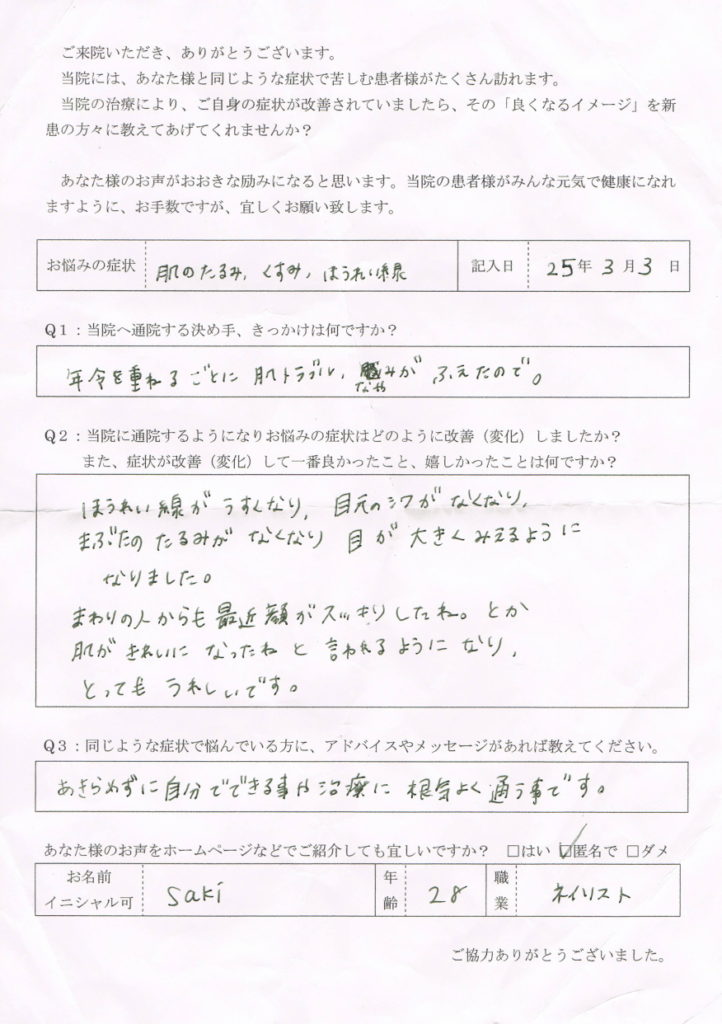 ご来院いただき、ありがとうございます。
当院には、あなた様と同じような症状で苦しむ患者様がたくさん訪れます。
当院の治療により、ご自身の症状が改善されていましたら、その「良くなるイメージ」を新
患の方々に教えてあげてくれませんか？
あなた様のお声がおおきな励みになると思います。当院の患者様がみんな元気で健康になれ
ますように、お手数ですが、宜しくお願い致します。
お悩みの症状 肌のたるみ、くすみ、ほうれい線 記入日 25年 3月 3日
Q1：当院へ通院する決め手、きっかけは何ですか？
年令を重ねるごとに 肌トラブル、 みが ふえたので。
なや
Q2：当院に通院するようになりお悩みの症状はどのように改善（変化）しましたか？
また、症状が改善（変化）して一番良かったこと、嬉しかったことは何ですか？
ほうれい線が うすくなり、 目元のシワが なくなり、
まぶたの たるみが なくなり 目が 大きくみえるように
なりました。
まわりの人からも 最近顔がスッキリしたね。とか
肌が きれいに なったねと 言われるように なり、
とっても うれしいです。
Q3：同じような症状で悩んでいる方に、アドバイスやメッセージがあれば教えてください。
あきらめずに自分でできる事や治療に 根気よく通う事です。
あなた様のお声をホームページなどでご紹介しても宜しいですか？ □はい ☑匿名で □ダメ
お名前 イニシャル可 saki 年齢 28 職業 ネイリスト
ご協力ありがとうございました。